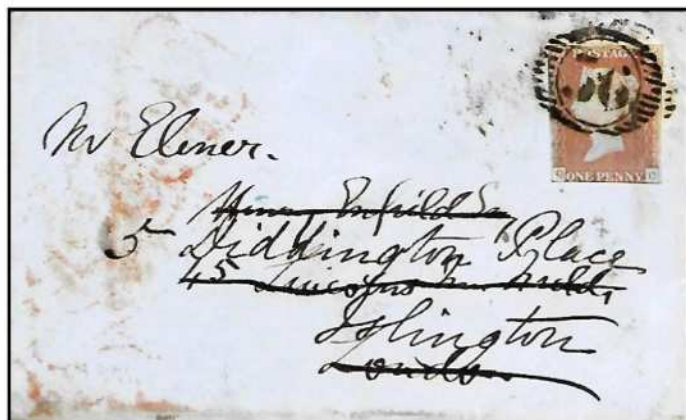 POSTAGE
ONE PENNY
Mr Elmer.
5 Diddington Place
45 Lincolns Inn Fields
Islington
London